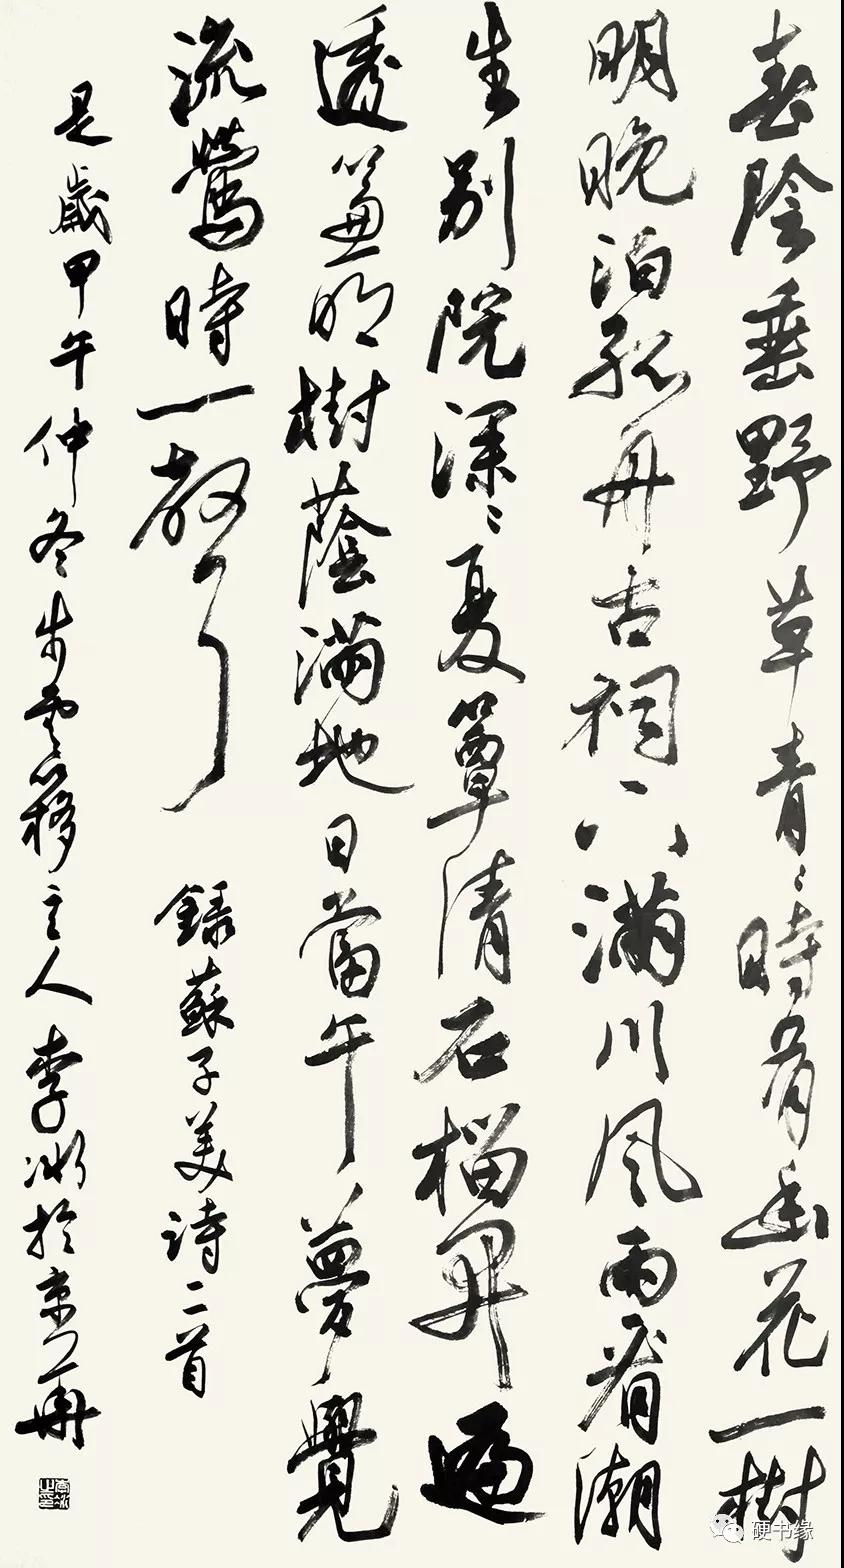 春陰垂野草青〻時有幽花一樹
明晚泊孤舟古祠下滿川風雨看潮
生別院深〻夏簟清石榴開遍
透簾明樹蔭滿地日當午夢覺
流鶯時一聲 錄蘇子美詩二首
是歲甲午仲冬步雲簃主人李冰於京華
李冰之印
硬书缘